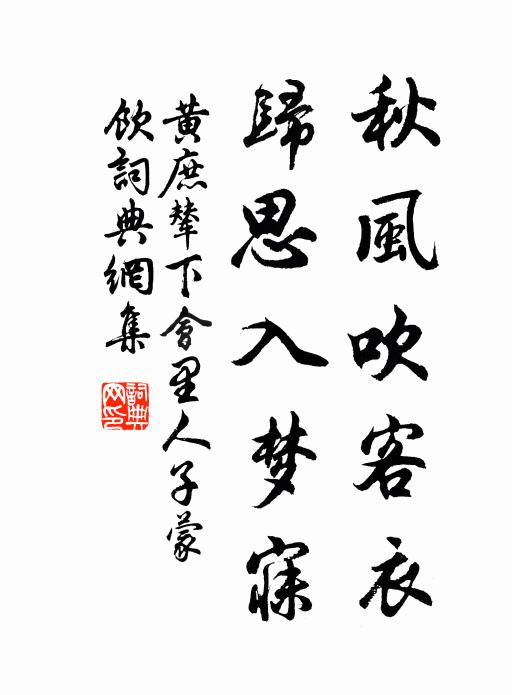 秋風吹客衣
歸思入梦寐
黃庶輦下會里人子蒙
飲詞典網集
詞典网印